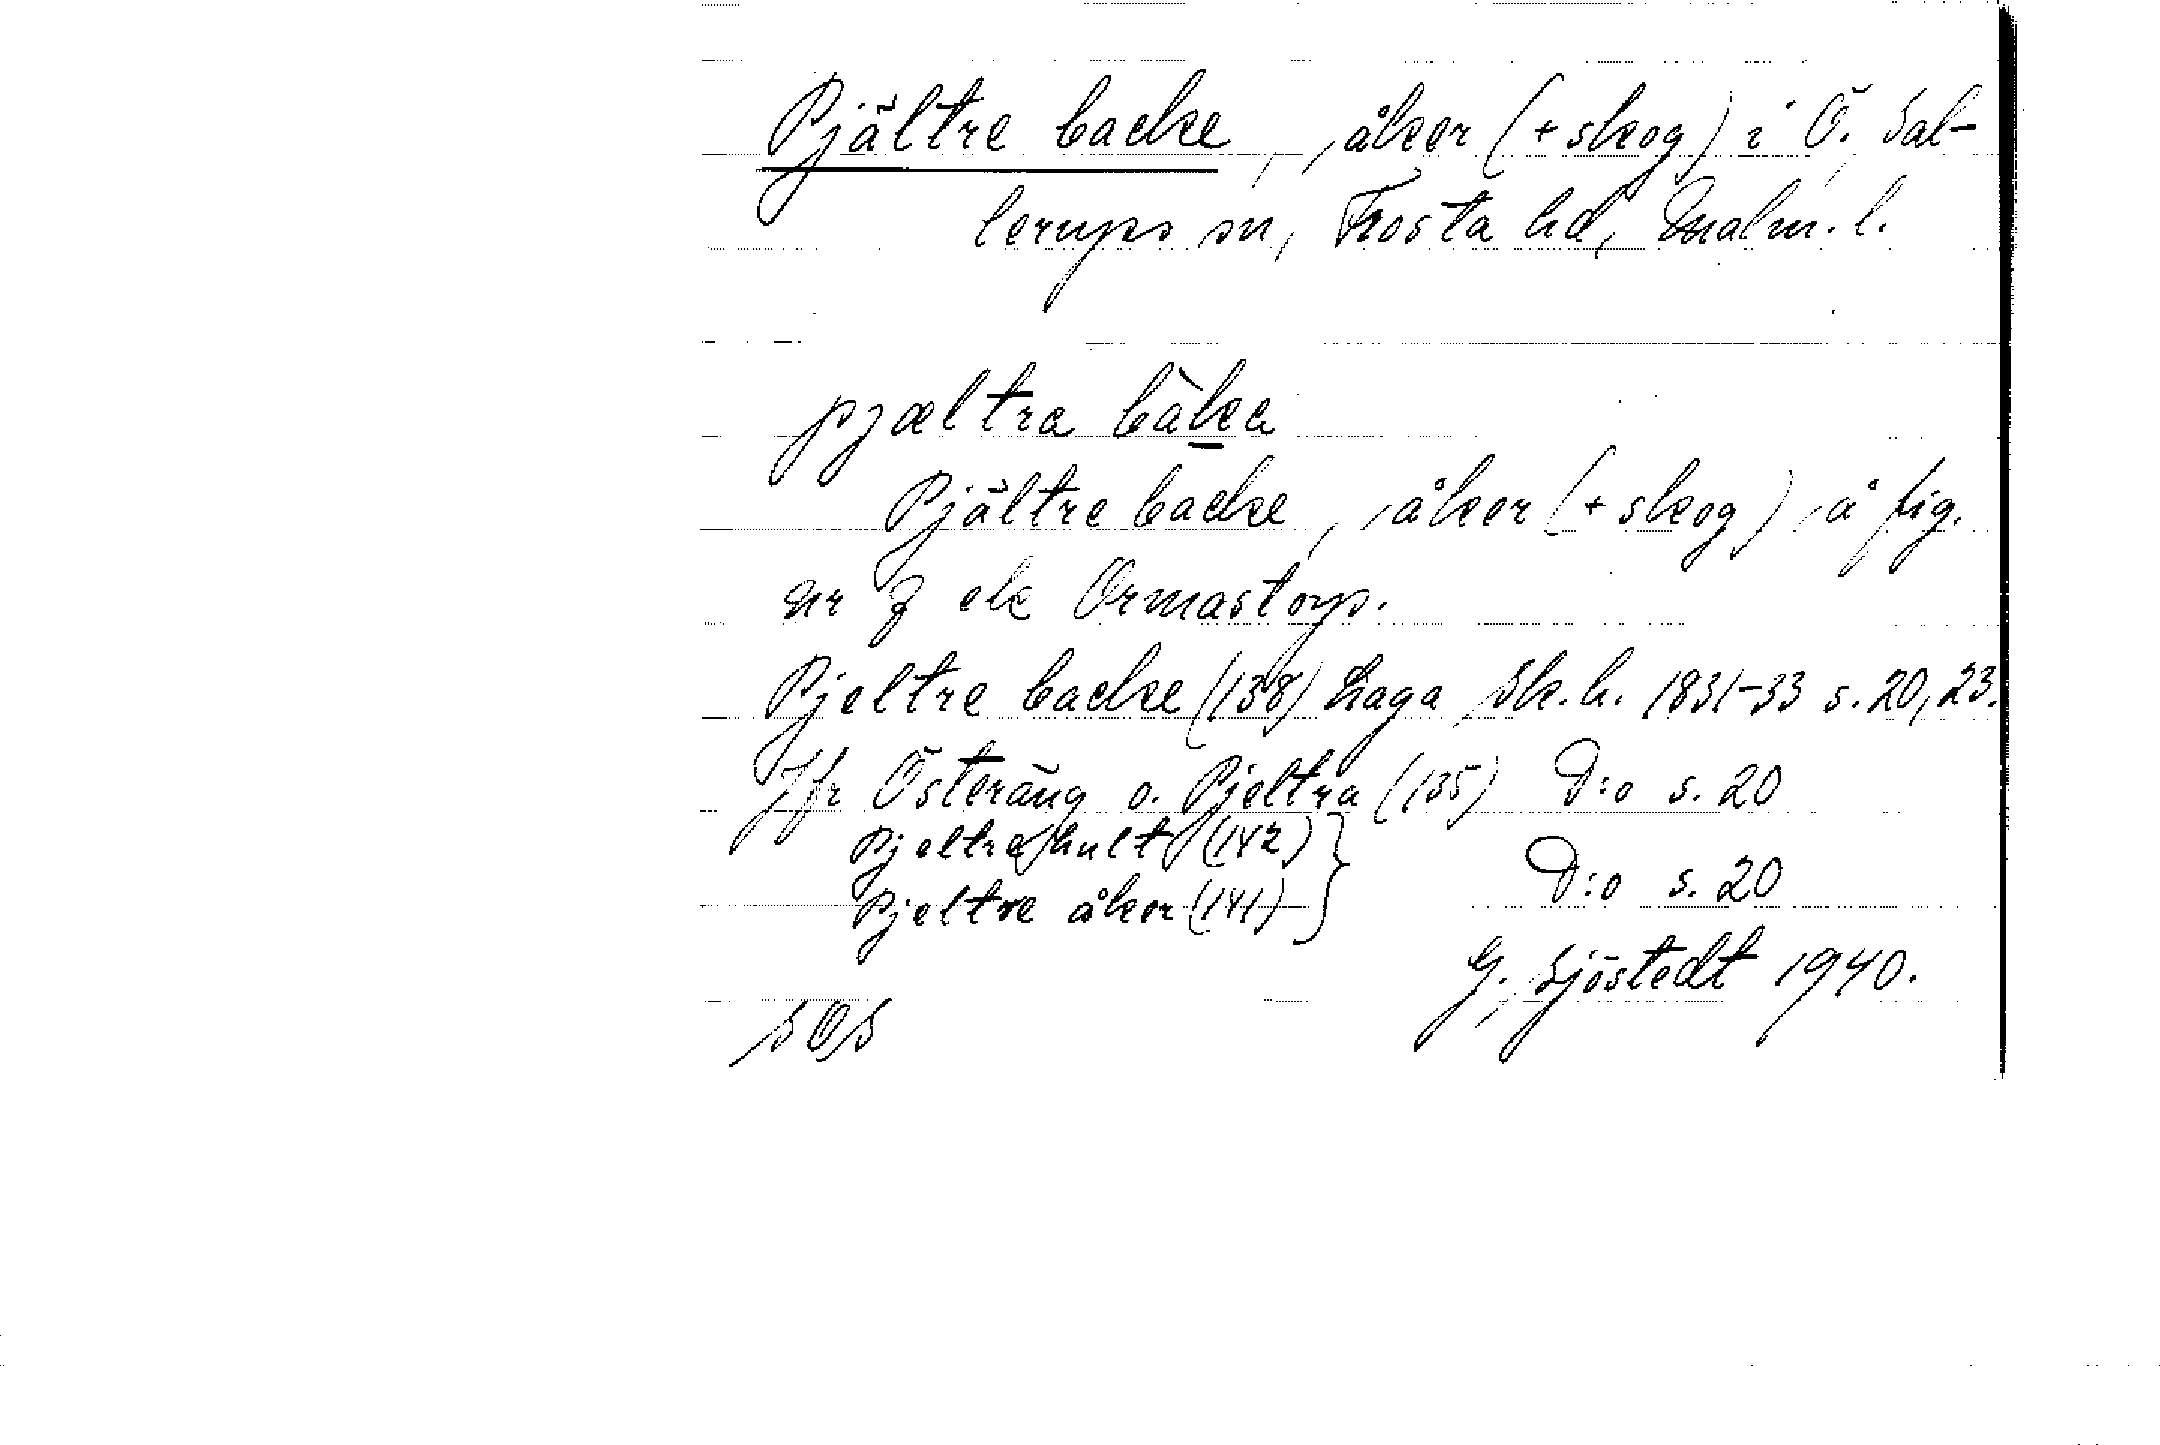 Pjältre backe, åker (+ skog) i Ö. Sal-
lerups sn, Frosta hd, Malm. l.
pjæltra bàka
Pjältre backe, åker (+ skog) å fig.
nr 7 ek Ormastorp.
Pjeltre backe (138) Laga Sk.h. 1831-33 s. 20, 23.
Jfr Österäng o. Pjeltra (135) D:o s. 20
Pjeltre hult (142)
Pjeltre åker (141) } D:o s. 20
G. Sjöstedt 1940.
SOS